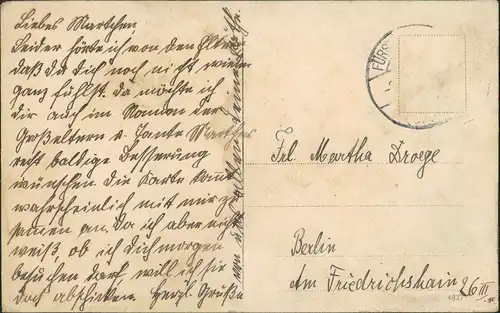 Liebes Martchen
Leider hörte ich von den Eltern
daß du dich noch nicht wieder
ganz fühlst. Da möchte ich
dir auch im Namen der
Großeltern u. Tante Marthe
recht baldige Besserung
wünschen. Die Karte kommt
wahrscheinlich mit mir zu
samen an. Da ich aber nicht
weiß, ob ich dich morgen
besuchen darf, will ich sie
doch abschicken. Herzl. Grüße
von
FÜRS
Frl. Martha Droege
Berlin
Am Friedrichshain 26 III
4827